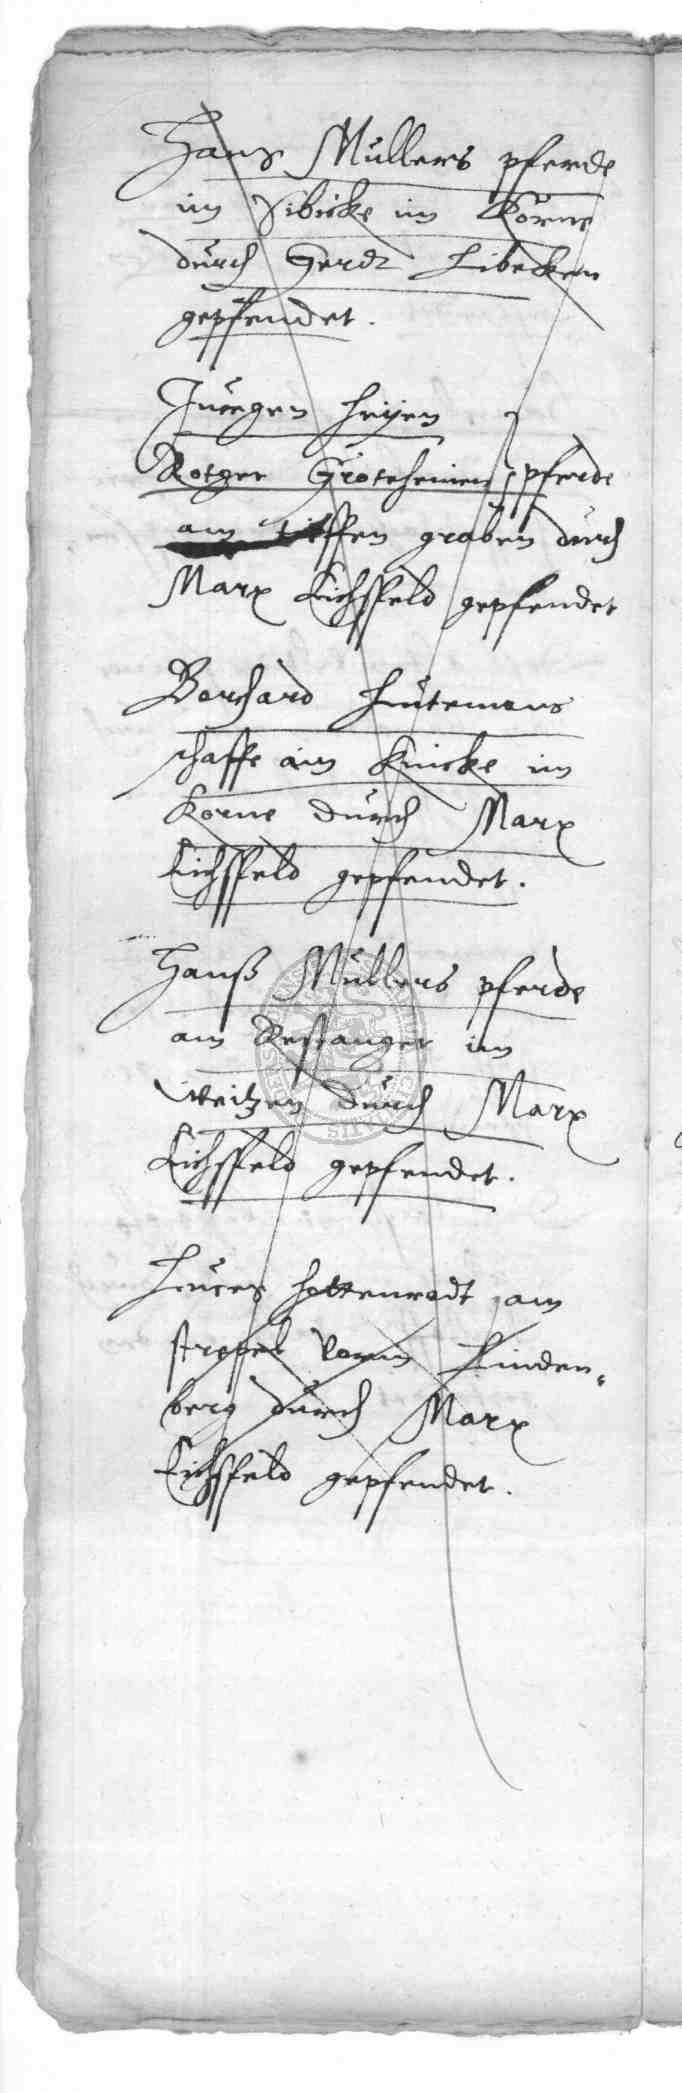 Hans Müllers pferde
im Sibicke im Körne
durch Gerdt Libecken
gepfendet.
Jürgen Heijen
Rotger Groteheinen pferde
am tieffen graben durch
Marx Eichsfeld gepfendet
Borchard Hütemans
schaffe am Knicke im
Korne durch Marx
Eichsfeld gepfendet.
Hanß Müllers pferde
am anger im
Weitzen durch Marx
Eichsfeld gepfendet.
Hottenrodt am
Linden-
berg durch Marx
Eichsfeld gepfendet.